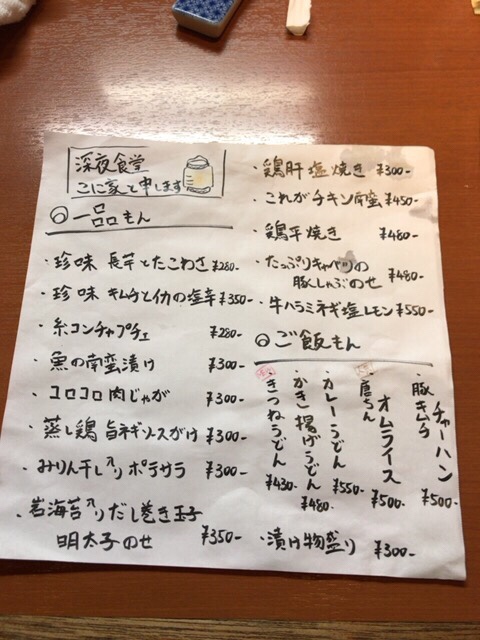 深夜食堂
こに家と申します
◎一品もん
・珍味 長芋とたこわさ ¥280-
・珍味 キムチとイカの塩辛 ¥350-
・糸コンチャプチェ ¥280-
・魚の南蛮漬け ¥300-
・コロコロ肉じゃが ¥300-
・蒸し鶏 旨ネギソースがけ ¥300-
・みりん干し入りポテサラ ¥300-
・岩海苔入りだし巻き玉子
明太子のせ ¥350-
・鶏肝塩焼き ¥300-
・これがチキン南蛮 ¥450-
・鶏平焼き ¥480-
・たっぷりキャベツの
豚しゃぶのせ ¥480-
・牛ハラミネギ塩レモン ¥550-
◎ご飯もん
・豚キムチ
チャーハン ¥500-
・唐ちん
オムライス ¥500-
・カレーうどん ¥550-
・かき揚げうどん ¥480-
・きつねうどん ¥430-
・漬け物盛り ¥300-